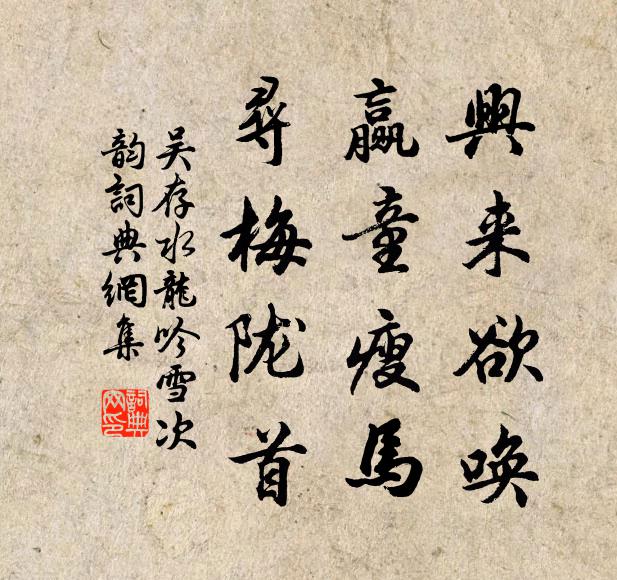 興来欲唤
羸童瘦馬
尋梅陇首
吴存水龍吟雪次
韵詞典網集
詞典
网印